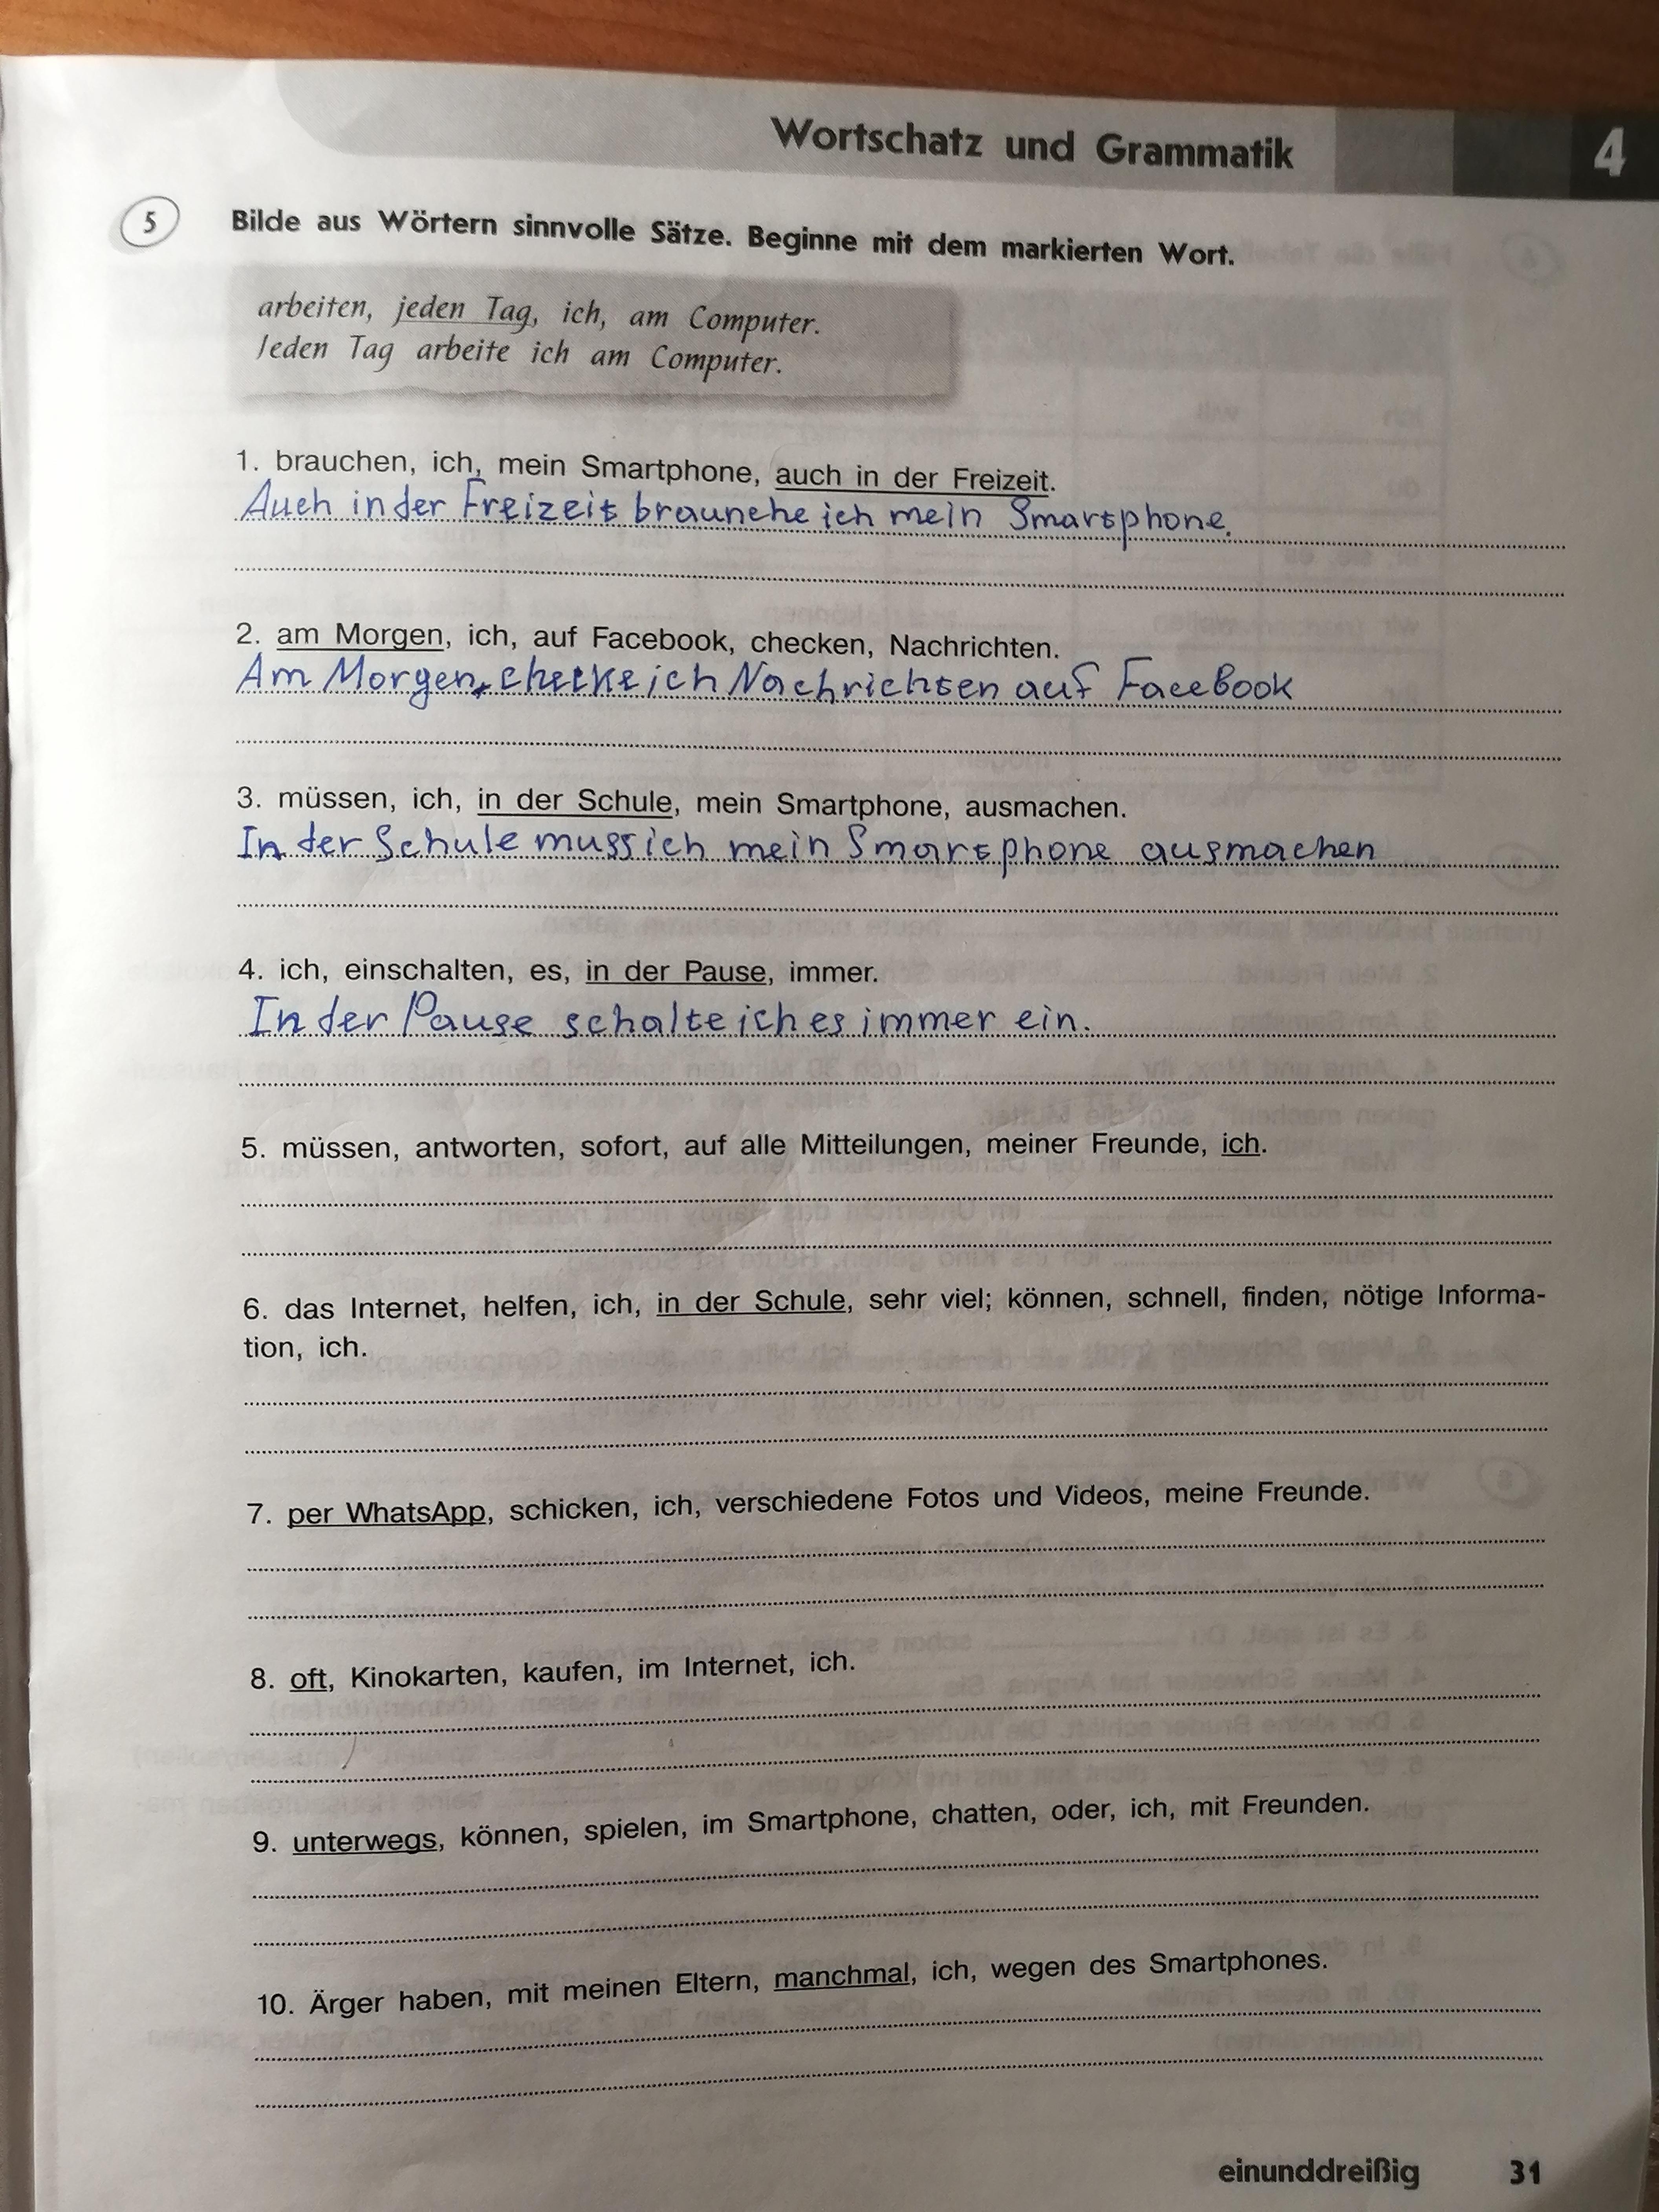 Wortschatz und Grammatik 4
5 Bilde aus Wörtern sinnvolle Sätze. Beginne mit dem markierten Wort.
arbeiten, jeden Tag, ich, am Computer.
Jeden Tag arbeite ich am Computer.
1. brauchen, ich, mein Smartphone, auch in der Freizeit.
Auch in der Freizeit braunche ich mein Smartphone.
2. am Morgen, ich, auf Facebook, checken, Nachrichten.
Am Morgen checke ich Nachrichten auf FaceBook
3. müssen, ich, in der Schule, mein Smartphone, ausmachen.
In der Schule muss ich mein Smartphone ausmachen
4. ich, einschalten, es, in der Pause, immer.
In der Pause schalte ich es immer ein.
5. müssen, antworten, sofort, auf alle Mitteilungen, meiner Freunde, ich.
6. das Internet, helfen, ich, in der Schule, sehr viel; können, schnell, finden, nötige Informa-
tion, ich.
7. per WhatsApp, schicken, ich, verschiedene Fotos und Videos, meine Freunde.
8. oft, Kinokarten, kaufen, im Internet, ich.
9. unterwegs, können, spielen, im Smartphone, chatten, oder, ich, mit Freunden.
10. Ärger haben, mit meinen Eltern, manchmal, ich, wegen des Smartphones.
einunddreißig 31